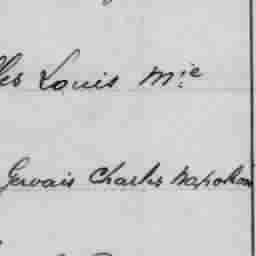 Louis M.ie
Gervais Charles Napoléon